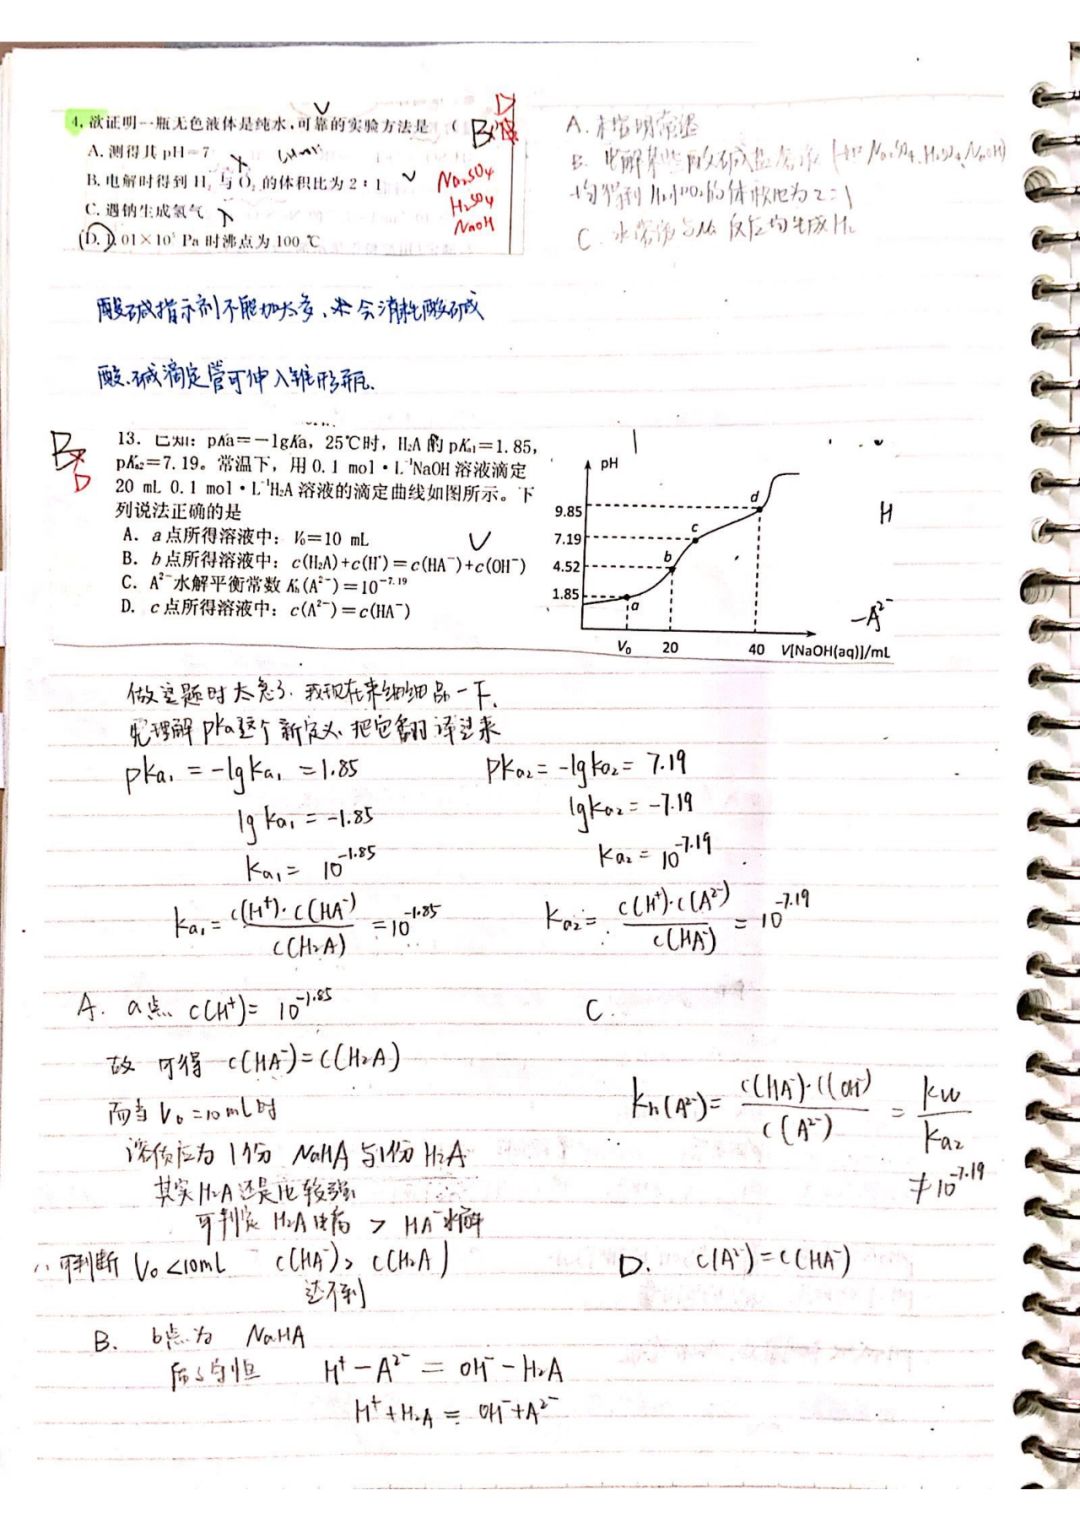 4, 欲证明一瓶无色液体是纯水,可靠的实验方法是 (
B
D
A. 测得其 pH=7
B. 电解时得到 H₂ 与 O₂ 的体积比为 2:1
C. 遇钠生成氢气
D. 1.01×10⁵ Pa 时沸点为 100 ℃
Na₂SO₄
H₂SO₄
NaOH
A. 未指明常温
B. 电解某些酸碱盐溶液 (如 Na₂SO₄, H₂SO₄, NaOH)
均得到 H₂和O₂的体积比为2:1
C. 水溶液与Na 反应均生成H₂
酸碱指示剂不能加太多, 会消耗酸碱
酸、碱滴定管可伸入锥形瓶.
B
D
13. 已知: pKa=-lgKa, 25℃时, H₂A 的 pKₐ₁=1.85,
pKₐ₂=7.19。常温下, 用 0.1 mol·L⁻¹NaOH 溶液滴定
20 mL 0.1 mol·L⁻¹H₂A 溶液的滴定曲线如图所示。下
列说法正确的是
A. a 点所得溶液中: V₀=10 mL
B. b 点所得溶液中: c(H₂A)+c(H⁺)=c(HA⁻)+c(OH⁻)
C. A²⁻水解平衡常数 Kₕ(A²⁻)=10⁻⁷·¹⁹
D. c 点所得溶液中: c(A²⁻)=c(HA⁻)
pH
9.85
7.19
4.52
1.85
a
b
c
d
V₀ 20 40 V[NaOH(aq)]/mL
H
-A²⁻
做这题时太急了. 我现在来细细品一下.
先理解 pKa这个新定义. 把它翻译过来
pKa₁ = -lgKa₁ = 1.85
pKa₂ = -lgKa₂ = 7.19
lg Ka₁ = -1.85
lgKa₂ = -7.19
Ka₁ = 10⁻¹·⁸⁵
Ka₂ = 10⁻⁷·¹⁹
Ka₁ = c(H⁺)·c(HA⁻) / c(H₂A) = 10⁻¹·⁸⁵
Ka₂ = c(H⁺)·c(A²⁻) / c(HA⁻) = 10⁻⁷·¹⁹
A. a点. c(H⁺)= 10⁻¹·⁸⁵
故 可得 c(HA⁻)=c(H₂A)
而当 V₀=10mL时
溶质应为 1份 NaHA 与1份 H₂A
其实H₂A还是比较强
可判定 H₂A电离 > HA⁻水解
∴ 可判断 V₀<10mL c(HA⁻)> c(H₂A)
达不到
B. b点为 NaHA
质子守恒 H⁺-A²⁻ = OH⁻-H₂A
H⁺+H₂A = OH⁻+A²⁻
C.
Kh(A²⁻)= c(HA⁻)·c(OH⁻) / c(A²⁻) = Kw / Ka₂
≠10⁻⁷·¹⁹
D. c(A²⁻)=c(HA⁻)